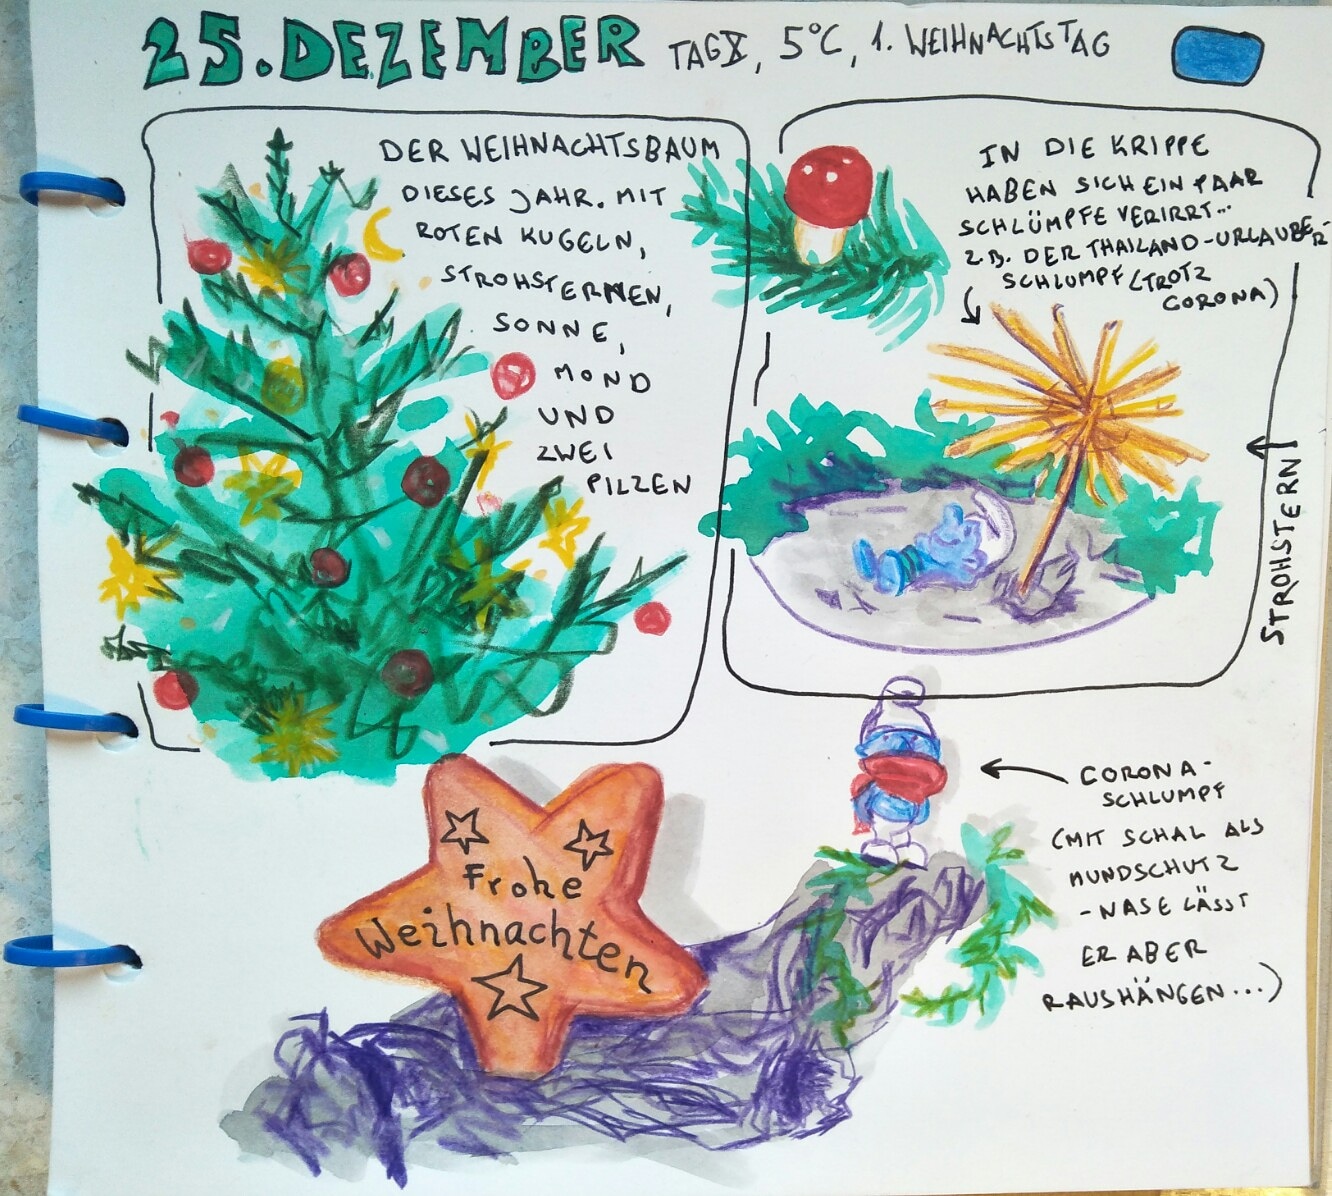 25. DEZEMBER TAG X, 5°C, 1. WEIHNACHTSTAG
DER WEIHNACHTSBAUM
DIESES JAHR. MIT
ROTEN KUGELN,
STROHSTERNEN,
SONNE,
MOND
UND
ZWEI
PILZEN
IN DIE KRIPPE
HABEN SICH EIN PAAR
SCHLÜMPFE VERIRRT...
Z.B. DER THAILAND-URLAUBER-
SCHLUMPF (TROTZ
CORONA)
STROHSTERN
CORONA-
SCHLUMPF
(MIT SCHAL ALS
MUNDSCHUTZ
- NASE LÄSST
ER ABER
RAUSHÄNGEN...)
Frohe
Weihnachten